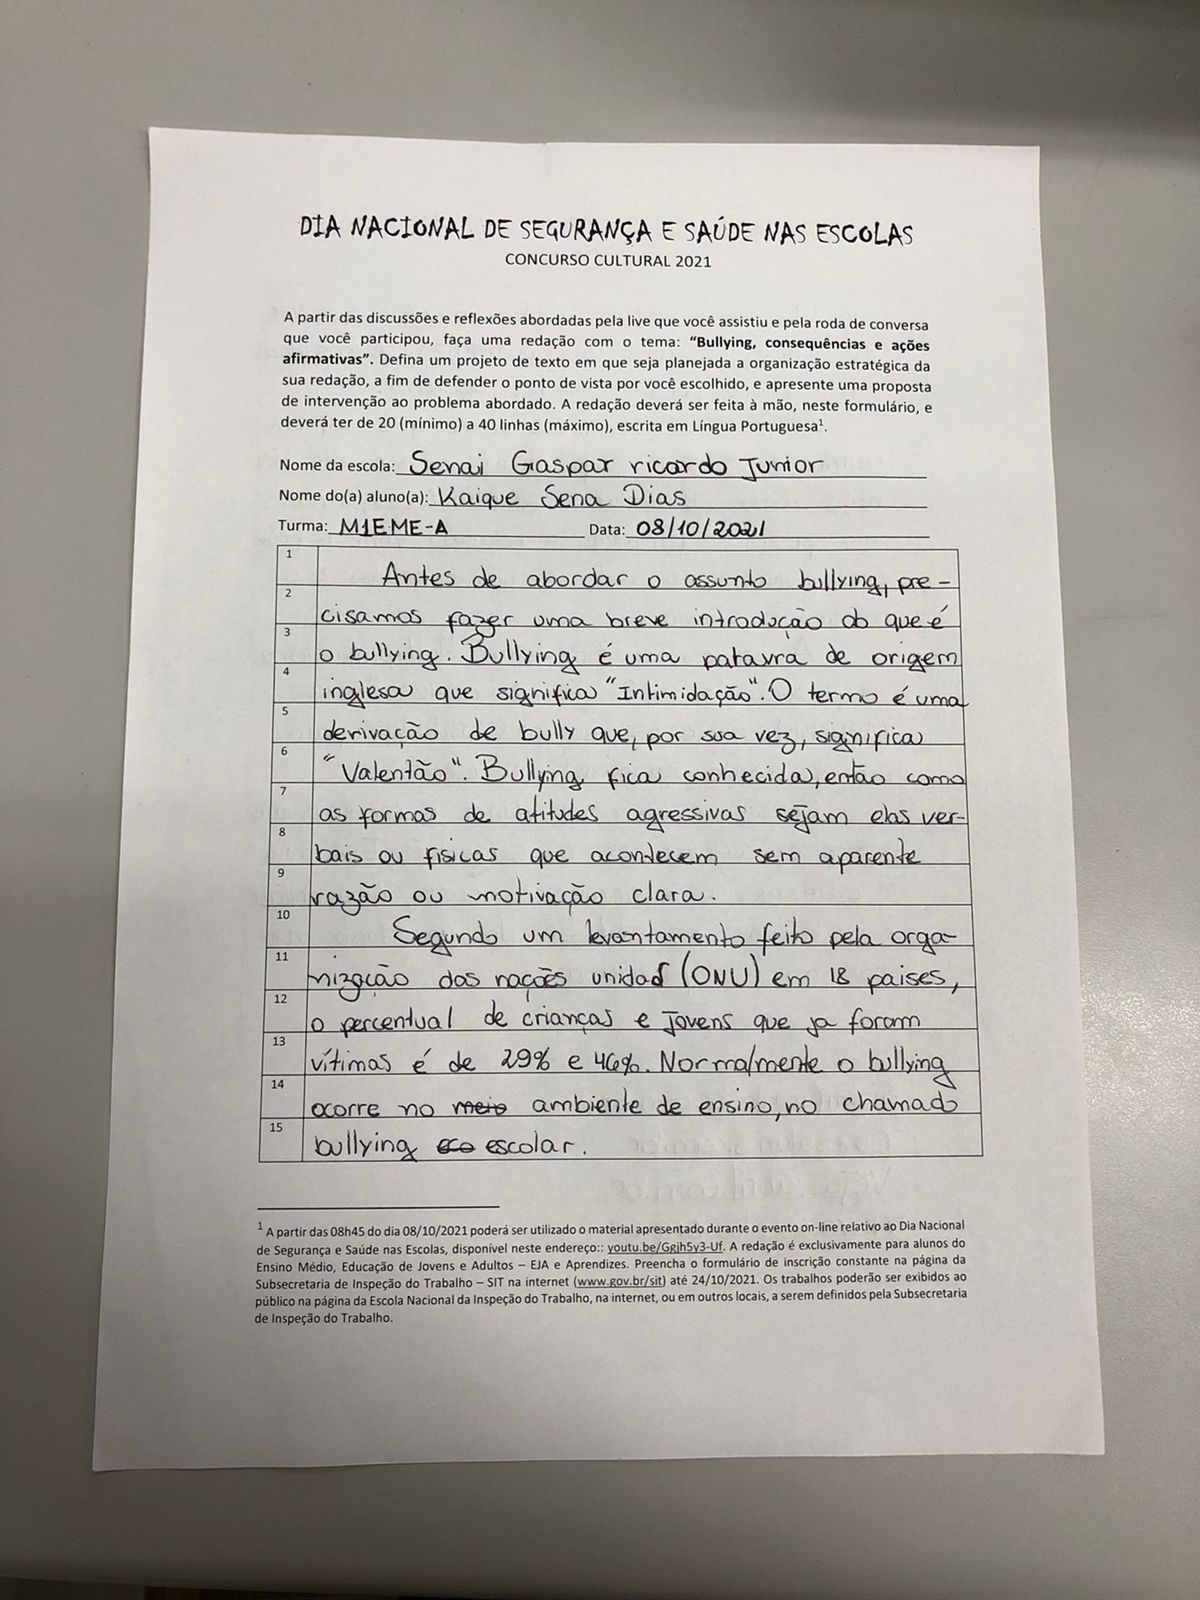 DIA NACIONAL DE SEGURANÇA E SAÚDE NAS ESCOLAS
CONCURSO CULTURAL 2021
A partir das discussões e reflexões abordadas pela live que você assistiu e pela roda de conversa
que você participou, faça uma redação com o tema: “Bullying, consequências e ações
afirmativas”. Defina um projeto de texto em que seja planejada a organização estratégica da
sua redação, a fim de defender o ponto de vista por você escolhido, e apresente uma proposta
de intervenção ao problema abordado. A redação deverá ser feita à mão, neste formulário, e
deverá ter de 20 (mínimo) a 40 linhas (máximo), escrita em Língua Portuguesa¹.
Nome da escola: Senai Gaspar ricardo Junior
Nome do(a) aluno(a): Kaique Sena Dias
Turma: M1EME-A Data: 08/10/2021
1 Antes de abordar o assunto bullying, pre-
2 cisamos fazer uma breve introdução do que é
3 o bullying. Bullying é uma patavra de origem
4 inglesa que significa "Intimidação". O termo é uma
5 derivação de bully que, por sua vez, significa
6 "Valentão". Bullying fica conhecida, então como
7 as formas de atitudes agressivas sejam elas ver-
8 bais ou fisicas que acontecem sem aparente
9 razão ou motivação clara.
10 Segundo um levantamento feito pela orga-
11 nização das nações unidas (ONU) em 18 paises,
12 o percentual de crianças e jovens que ja foram
13 vítimas é de 29% e 46%. Normalmente o bullying
14 ocorre no meio ambiente de ensino, no chamado
15 bullying eco escolar.
¹ A partir das 08h45 do dia 08/10/2021 poderá ser utilizado o material apresentado durante o evento on-line relativo ao Dia Nacional
de Segurança e Saúde nas Escolas, disponível neste endereço:: youtu.be/Ggjh5y3-Uf. A redação é exclusivamente para alunos do
Ensino Médio, Educação de Jovens e Adultos – EJA e Aprendizes. Preencha o formulário de inscrição constante na página da
Subsecretaria de Inspeção do Trabalho – SIT na internet (www.gov.br/sit) até 24/10/2021. Os trabalhos poderão ser exibidos ao
público na página da Escola Nacional da Inspeção do Trabalho, na internet, ou em outros locais, a serem definidos pela Subsecretaria
de Inspeção do Trabalho.